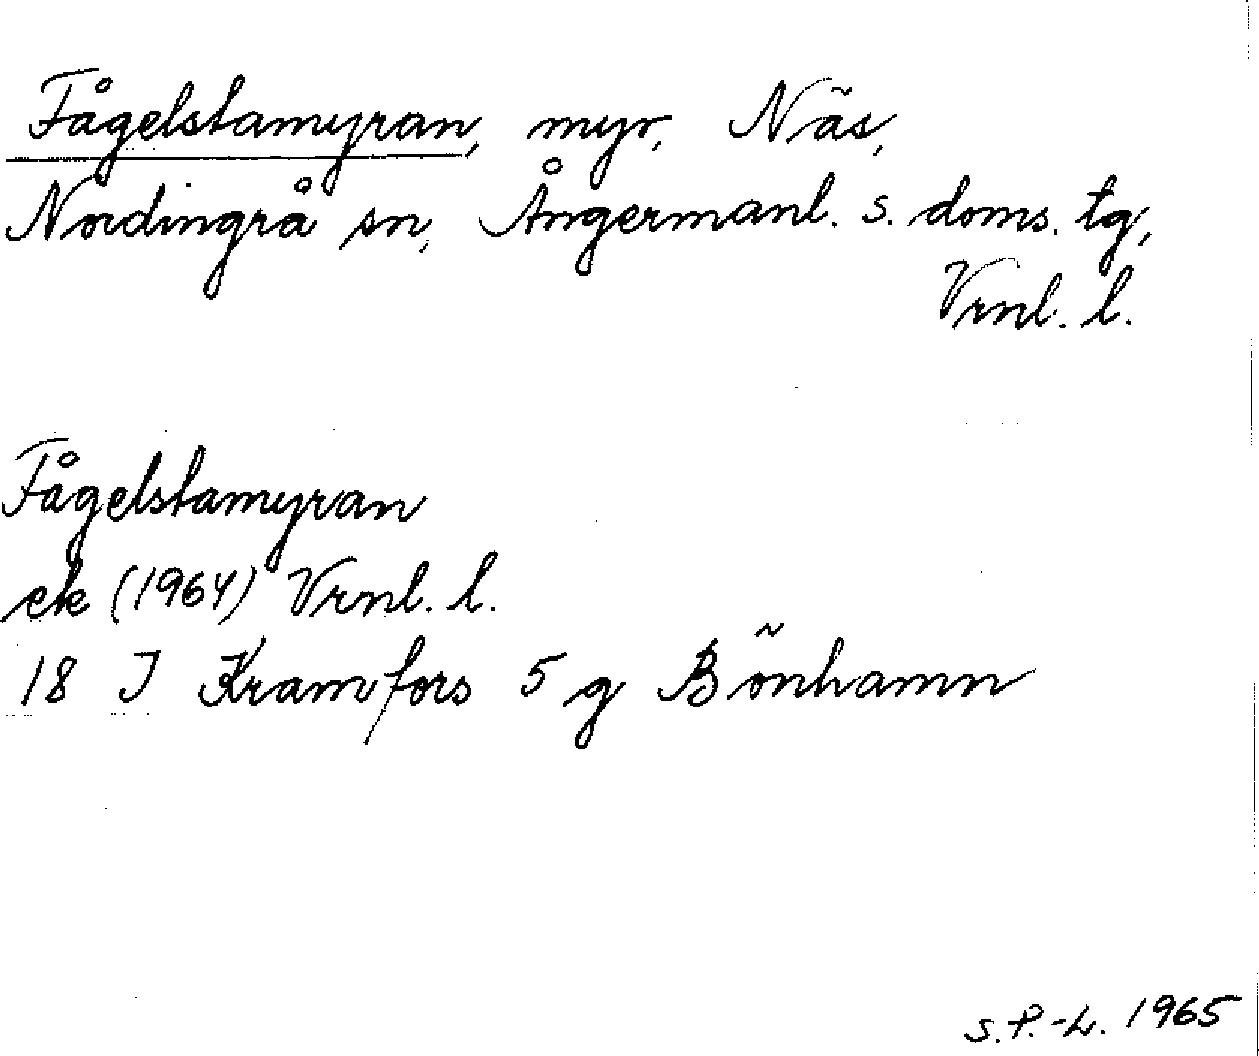 Fågelstamyran, myr, Näs,
Nordingrå sn, Ångermanl. s. doms. tg,
Vrnl. l.
Fågelstamyran
ek (1964) Vrnl. l.
18 J Kramfors 5 g Bönhamn
S.P.-L. 1965